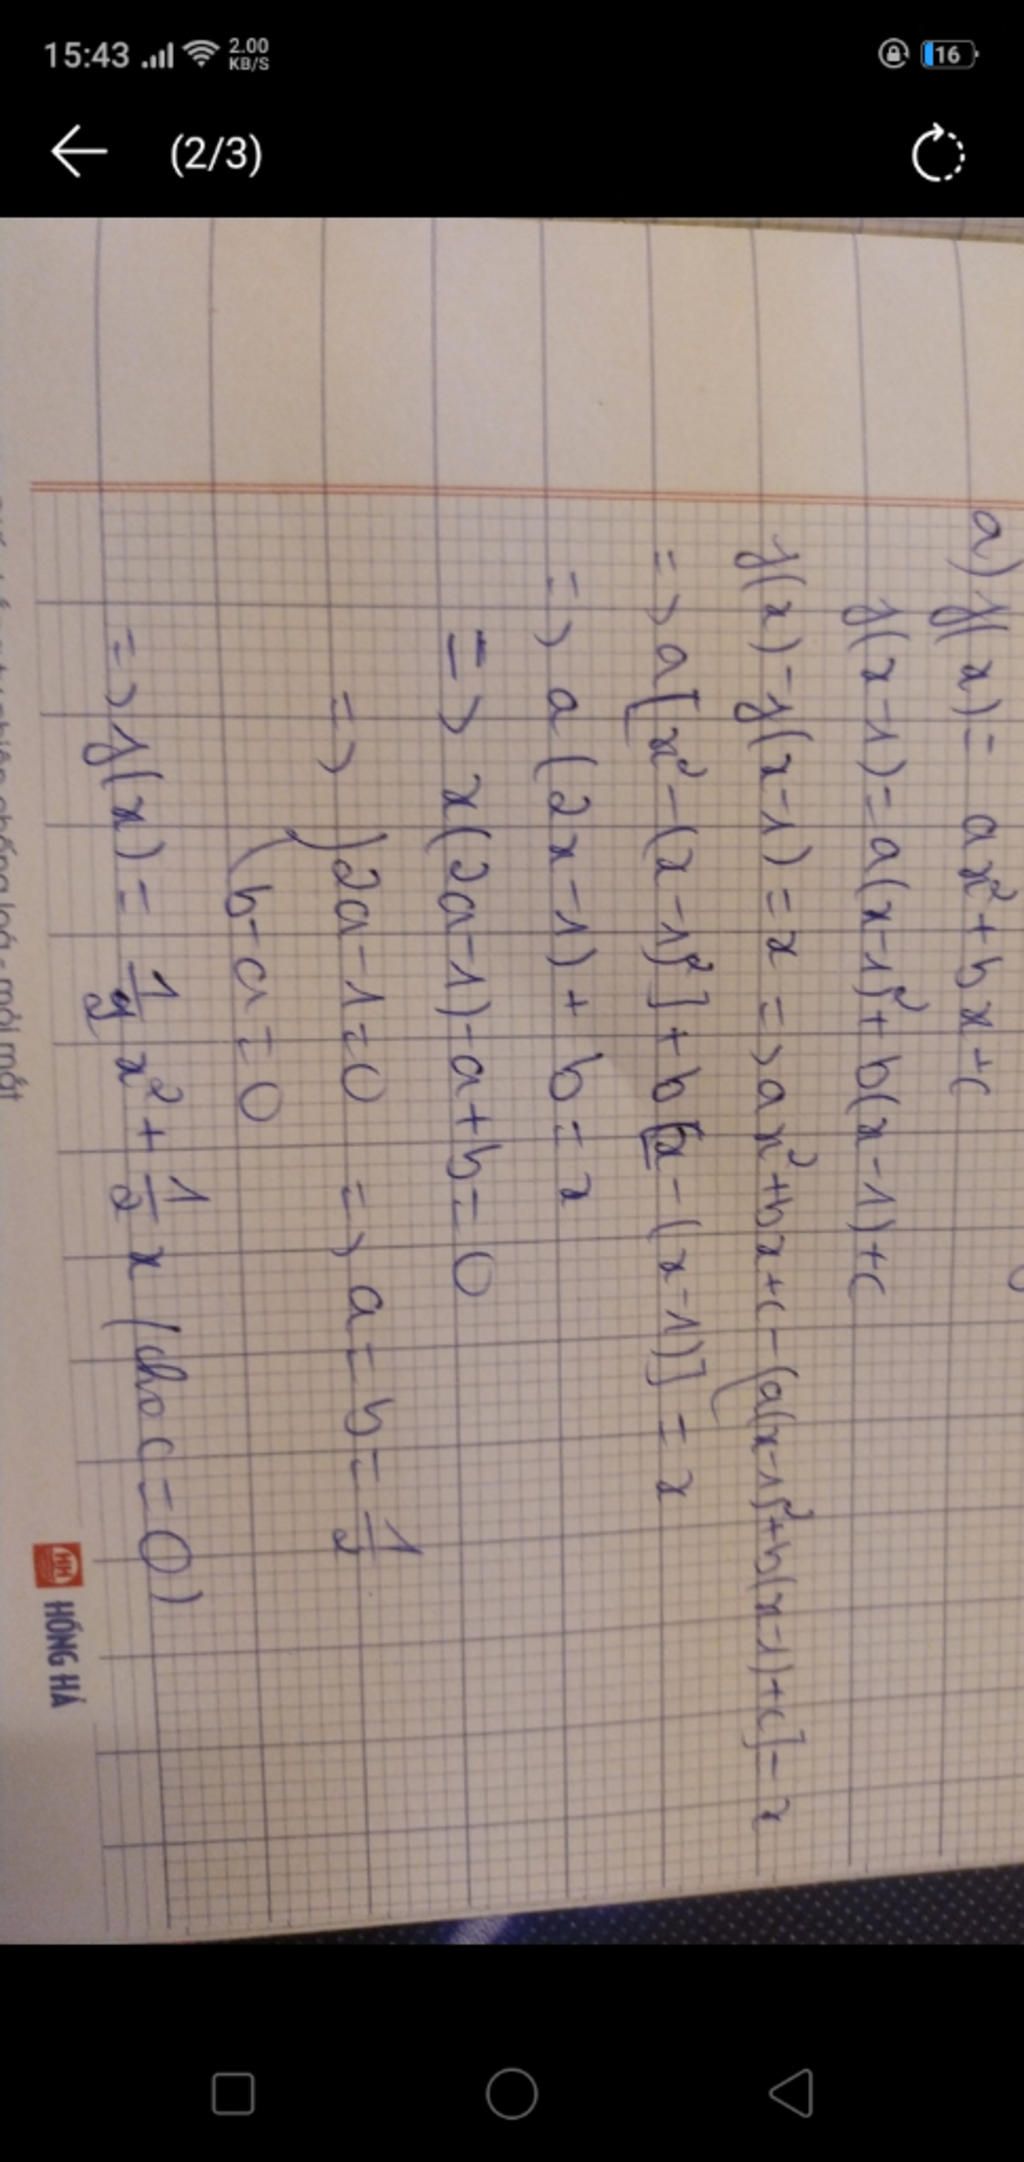 15:43
2.00
KB/S
16
(2/3)
a) f(x) = ax² + bx + c
f(x-1) = a(x-1)² + b(x-1) + c
f(x) - f(x-1) = x => ax² + bx + c - [a(x-1)² + b(x-1) + c] = x
=> a[x² - (x-1)²] + b[x - (x-1)] = x
=> a(2x-1) + b = x
=> x(2a-1) - a + b = 0
=> { 2a - 1 = 0 => a = b = 1/2
b - a = 0
=> f(x) = 1/2 x² + 1/2 x (cho c = 0)
HỒNG HÀ